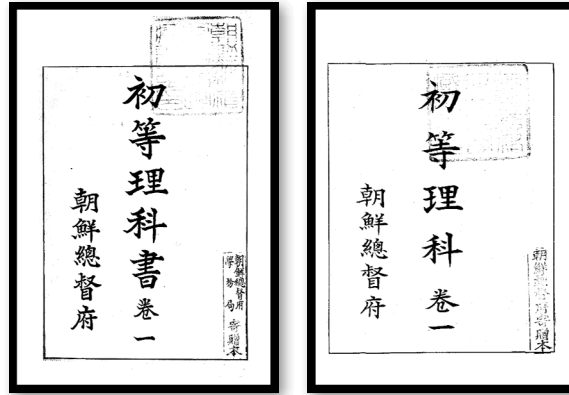 初等理科書 卷一
朝鮮總督府
朝鮮總督府
學務局
寄贈本
初等理科 卷一
朝鮮總督府
朝鮮總督府寄贈本